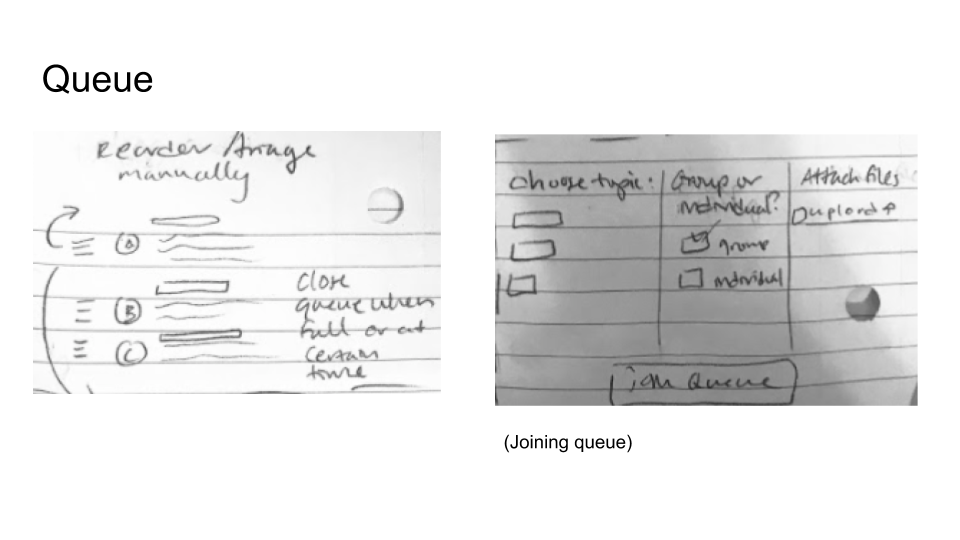 Queue
Reorder/Arrage
manually
A
B
C
Close
queue when
full or at
certain
time
Choose topic:
Group or
individual?
group
individual
Attach files
upload↑
join Queue
(Joining queue)